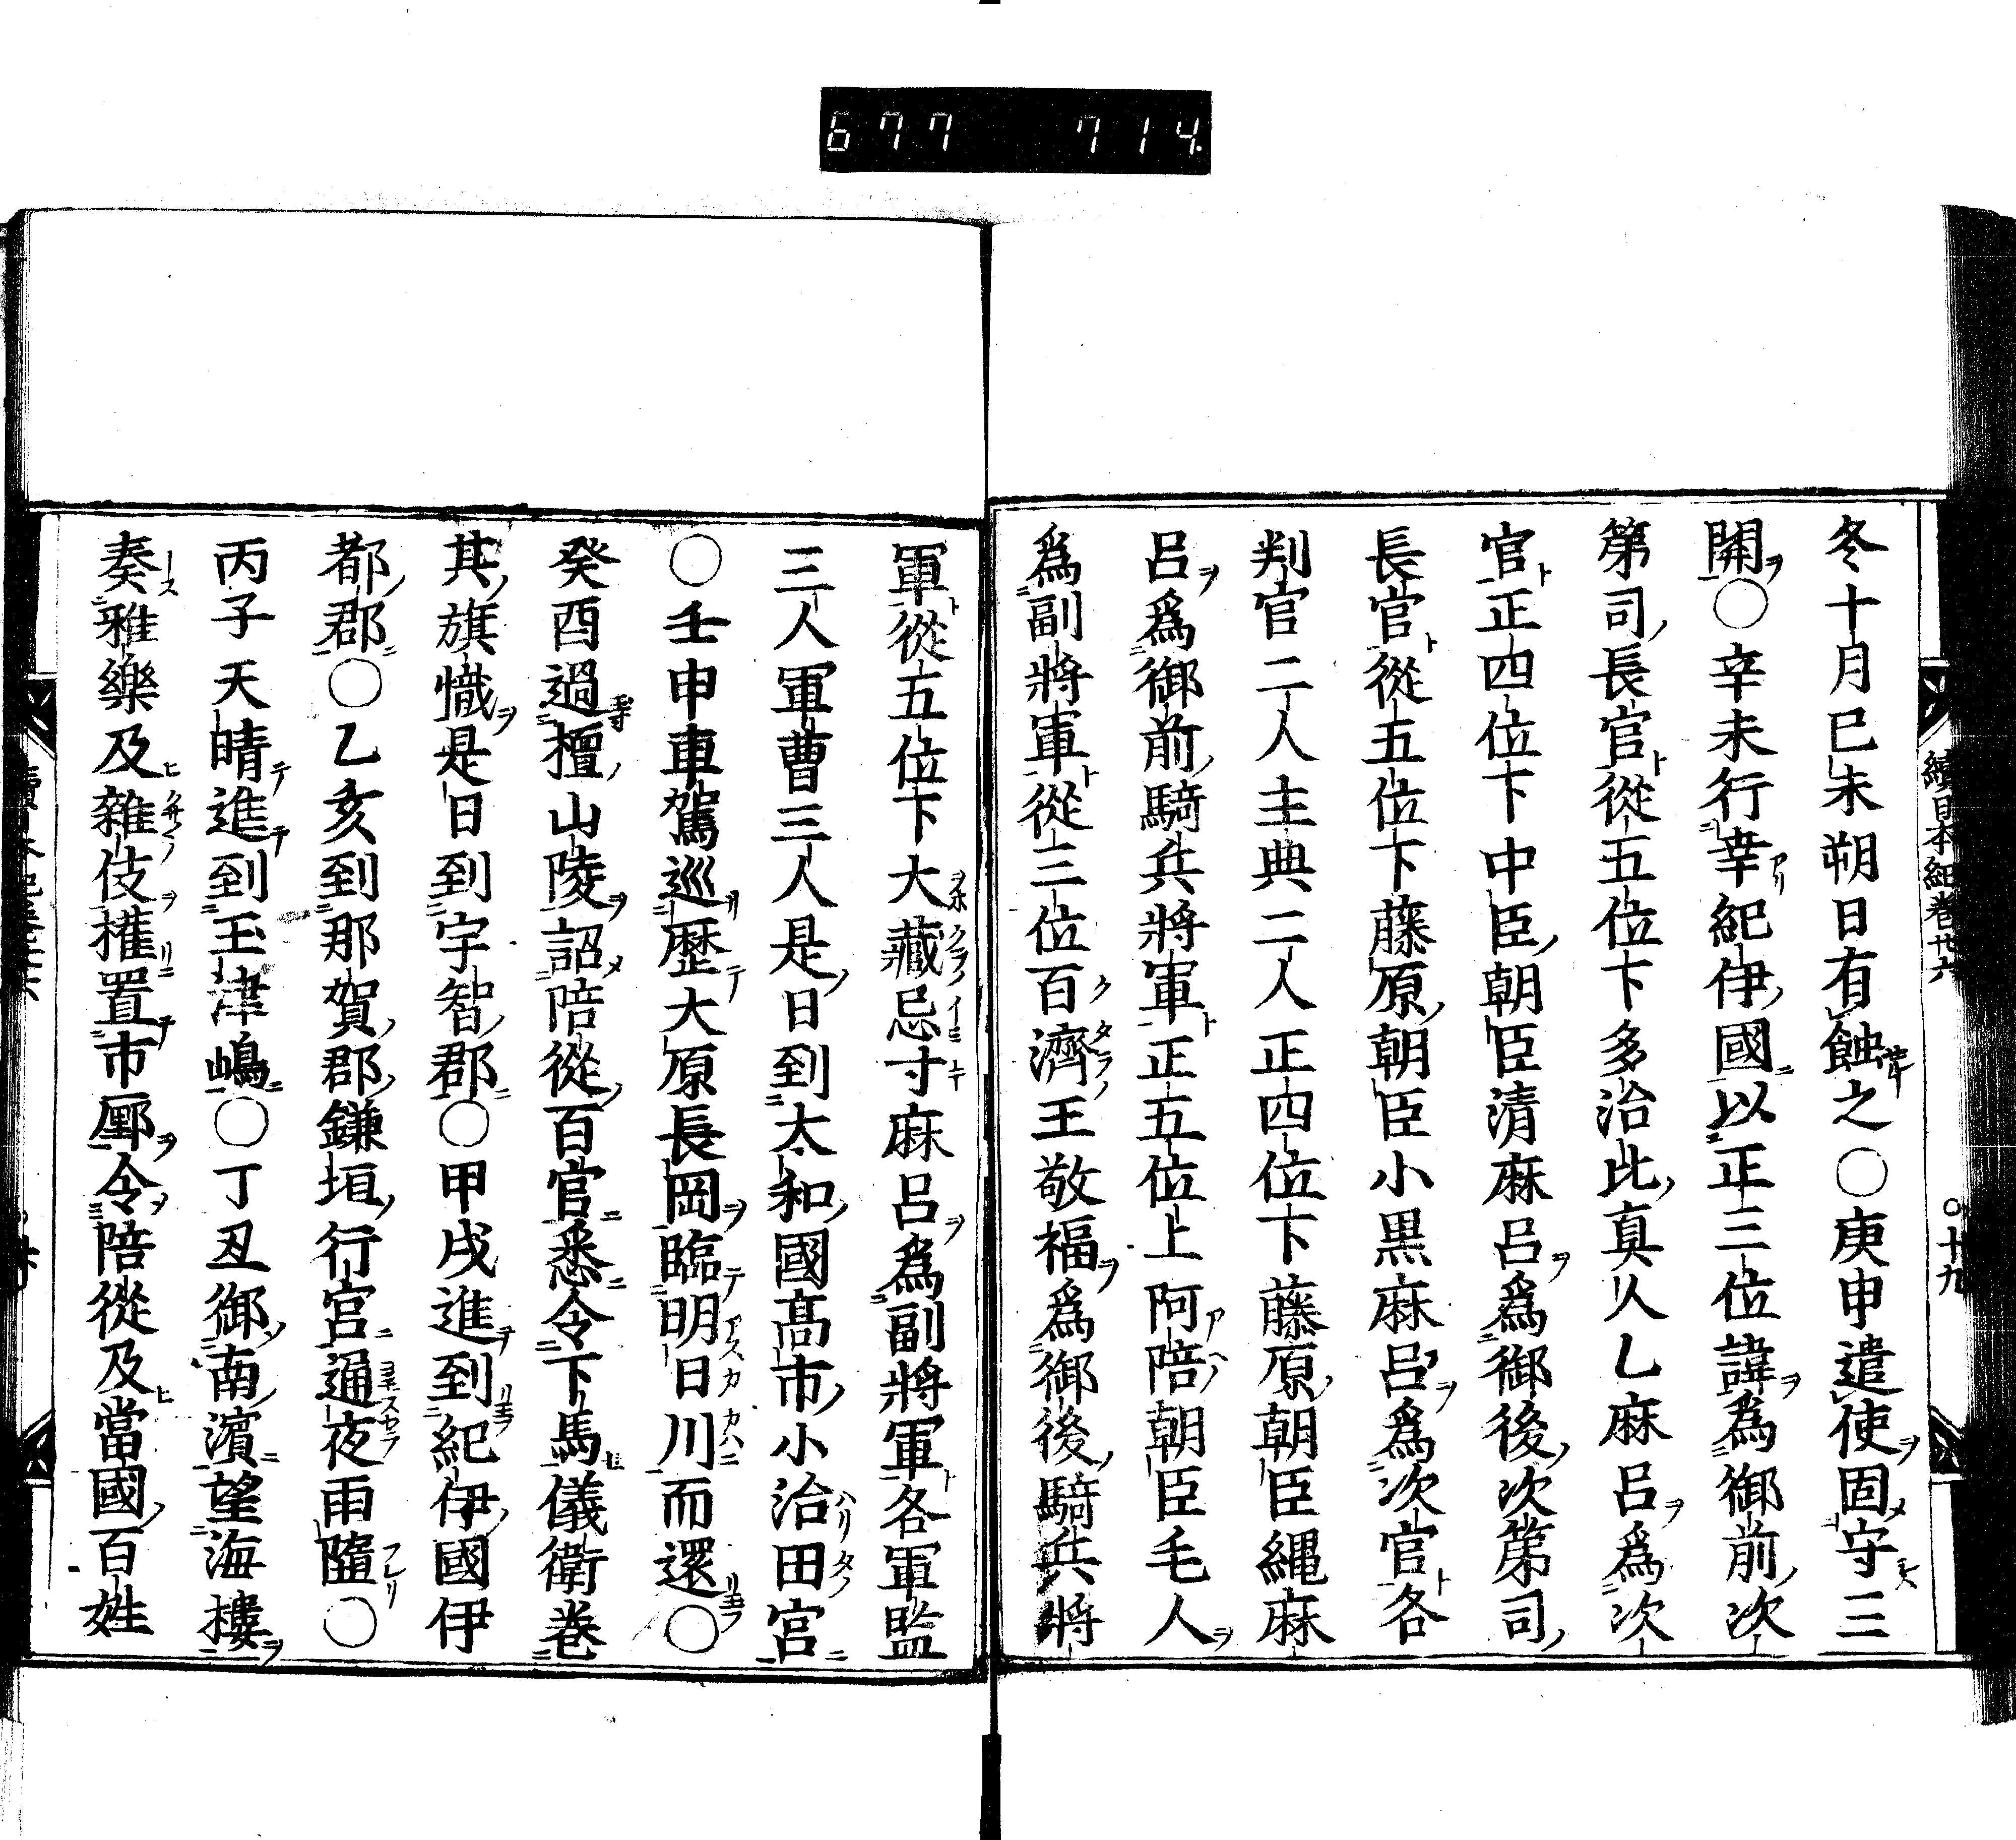 677 714
續日本紀卷廿六 ○十九
冬十月己未朔日有蝕之○庚申遣使固守三
開○辛未行幸紀伊國以正三位諱為御前次
第司長官從五位下多治比真人乙麻呂爲次
官正四位下中臣朝臣清麻呂爲御後次第司
長官從五位下藤原朝臣小黒麻呂爲次官各
判官二人主典二人正四位下藤原朝臣縄麻
呂爲御前騎兵將軍正五位上阿陪朝臣毛人
爲副將軍從三位百濟王敬福爲御後騎兵將
軍從五位下大藏忌寸麻呂爲副將軍各軍監
三人軍曹三人是日到太和國髙市小治田宮
○壬申車駕巡歴大原長岡臨明日川而還○
癸酉過檀山陵詔陪從百官悉令下馬儀衛巻
其旗幟是日到宇智郡○甲戌進到紀伊國伊
都郡○乙亥到那賀郡鎌垣行宮通夜雨墮○
丙子天晴進到玉津嶋○丁丑御南濱望海樓
奏雅樂及雜伎權置市廛令陪從及當國百姓